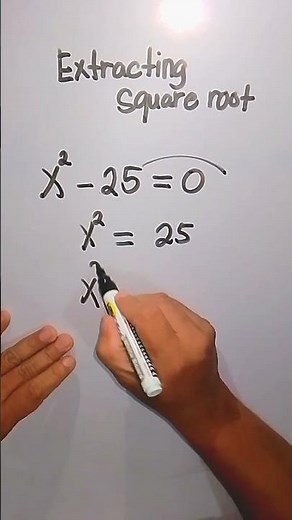 Extracting
Square root
x² - 25 = 0
x² = 25
x²